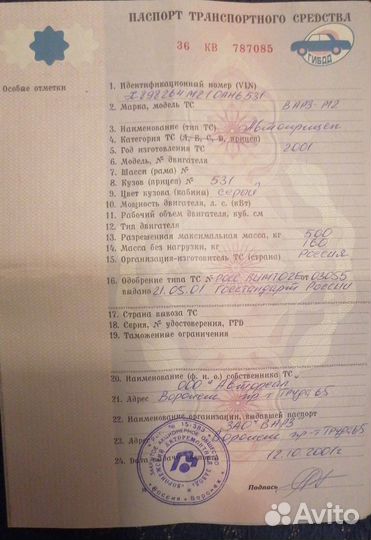 ПАСПОРТ ТРАНСПОРТНОГО СРЕДСТВА
36 КВ 787085
ГИБДД
Особые отметки
1. Идентификационный номер (VIN)
2. Марка, модель ТС ВАРЗ-М2
3. Наименование (тип ТС) Автоприцеп
4. Категория ТС (А, В, С, D, прицеп)
5. Год изготовления ТС 2001
6. Модель, № двигателя
7. Шасси (рама) №
8. Кузов (прицеп) № 531
9. Цвет кузова (кабины) серый
10. Мощность двигателя, л. с. (кВт)
11. Рабочий объем двигателя, куб. см
12. Тип двигателя
13. Разрешенная максимальная масса, кг 500
14. Масса без нагрузки, кг 160
15. Организация-изготовитель ТС (страна) Россия
16. Одобрение типа ТС №
выдано 21.05.01 Госстандарт России
17. Страна вывоза ТС
18. Серия, № удостоверения, ГТД
19. Таможенные ограничения
20. Наименование (ф. и. о.) собственника ТС
ООО "Авторейл"
21. Адрес Воронеж пр-т Труда 65
22. Наименование организации, выдавшей паспорт
ЗАО "ВАРЗ"
23. Адрес Воронеж пр-т Труда 65
24. Дата 12.10.2001г
Подпись
Avito